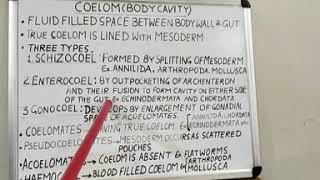 COELOM (BODY CAVITY)
• FLUID FILLED SPACE BETWEEN BODY WALL & GUT
• TRUE COELOM IS LINED WITH MESODERM
• THREE TYPES.
1. SCHIZOCOEL: FORMED BY SPLITTING OF MESODERM
Ex ANNILIDA, ARTHROPODA, MOLLUSCA
2. ENTEROCOEL: BY OUTPOCKETING OF ARCHENTERON
AND THEIR FUSION TO FORM CAVITY ON EITHER SIDE
OF THE GUT Ex ECHINODERMATA AND CHORDATA
3. GONOCOEL: BY ENLARGEMENT OF GONADIAL
SPACE OF ACOELOMATES.
• COELOMATES TRUE COELOM. Ex ANNILIDA, CHORDATA
ECHINODERMATA etc
• PSEUDOCOELOMATES MESODERM OCCURS AS SCATTERED
POUCHES
• ACOELOMAT COELOM IS ABSENT Ex FLATWORMS
• HAEMOC BLOOD FILLED COELOM Ex ARTHROPODA
MOLLUSCA